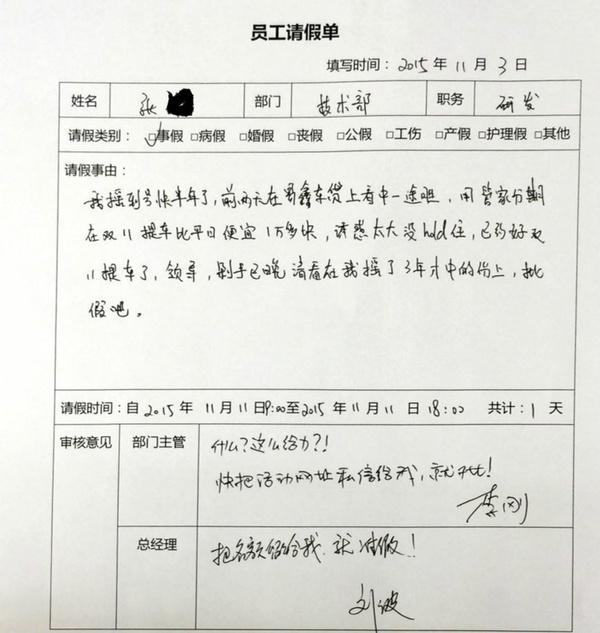 员工请假单
填写时间：2015年11月3日
姓名 张 部门 技术部 职务 研发
请假类别：☑事假 □病假 □婚假 □丧假 □公假 □工伤 □产假 □护理假 □其他
请假事由：
我摇到号快半年了，前两天在易鑫车贷上看中一途胜，用管家分期
在双11提车比平日便宜1万多块，诱惑太大没hold住，已约好双
11提车了，领导，剁手已晚请看在我摇了3年才中的份上，批
假吧。
请假时间：自2015年11月11日9:00至2015年11月11日18:00 共计：1天
审核意见 部门主管 什么？这么给力？！
快把活动网址私信给我，就批！
李刚
总经理 把名额留给我，就准假！
刘波